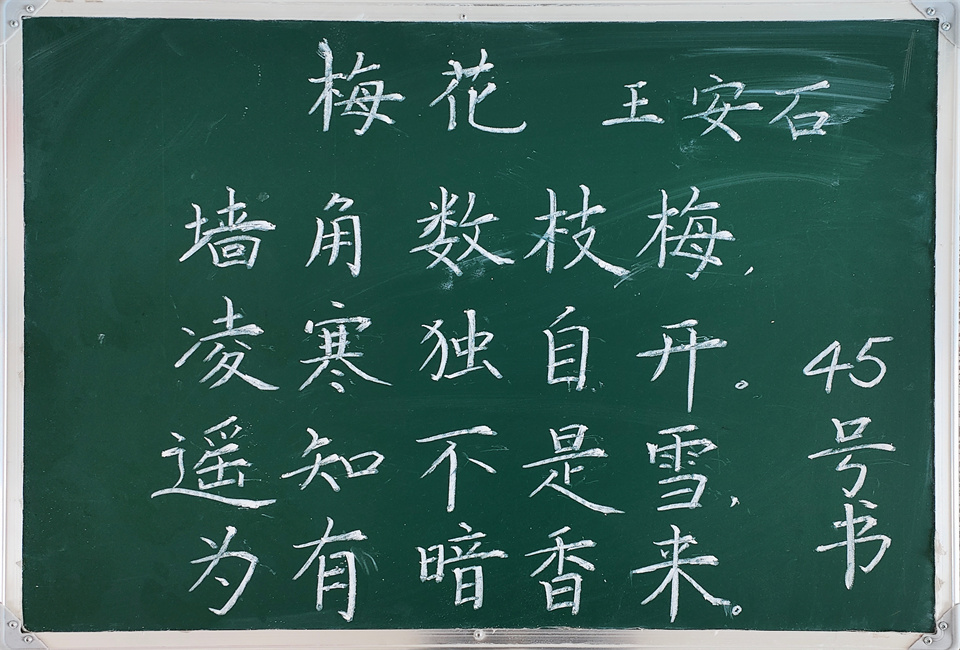 梅花 王安石
墙角数枝梅,
凌寒独自开。
遥知不是雪,
为有暗香来。
45
号
书